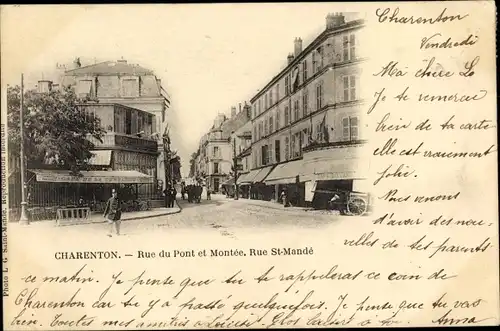 Charenton
Vendredi
Ma chère Lo
Je te remercie
bien de ta carte
elle est vraiment
jolie.
Nous venons
d'avoir des nou-
velles de tes parents
CHARENTON. — Rue du Pont et Montée, Rue St-Mandé
ce matin. Je pense que tu te rappelleras ce coin de
Charenton car tu y a passé quelquefois. Je pense que tu vas
bien. Toutes mes amitiés à Louise. Gros baisers à tous. Anna